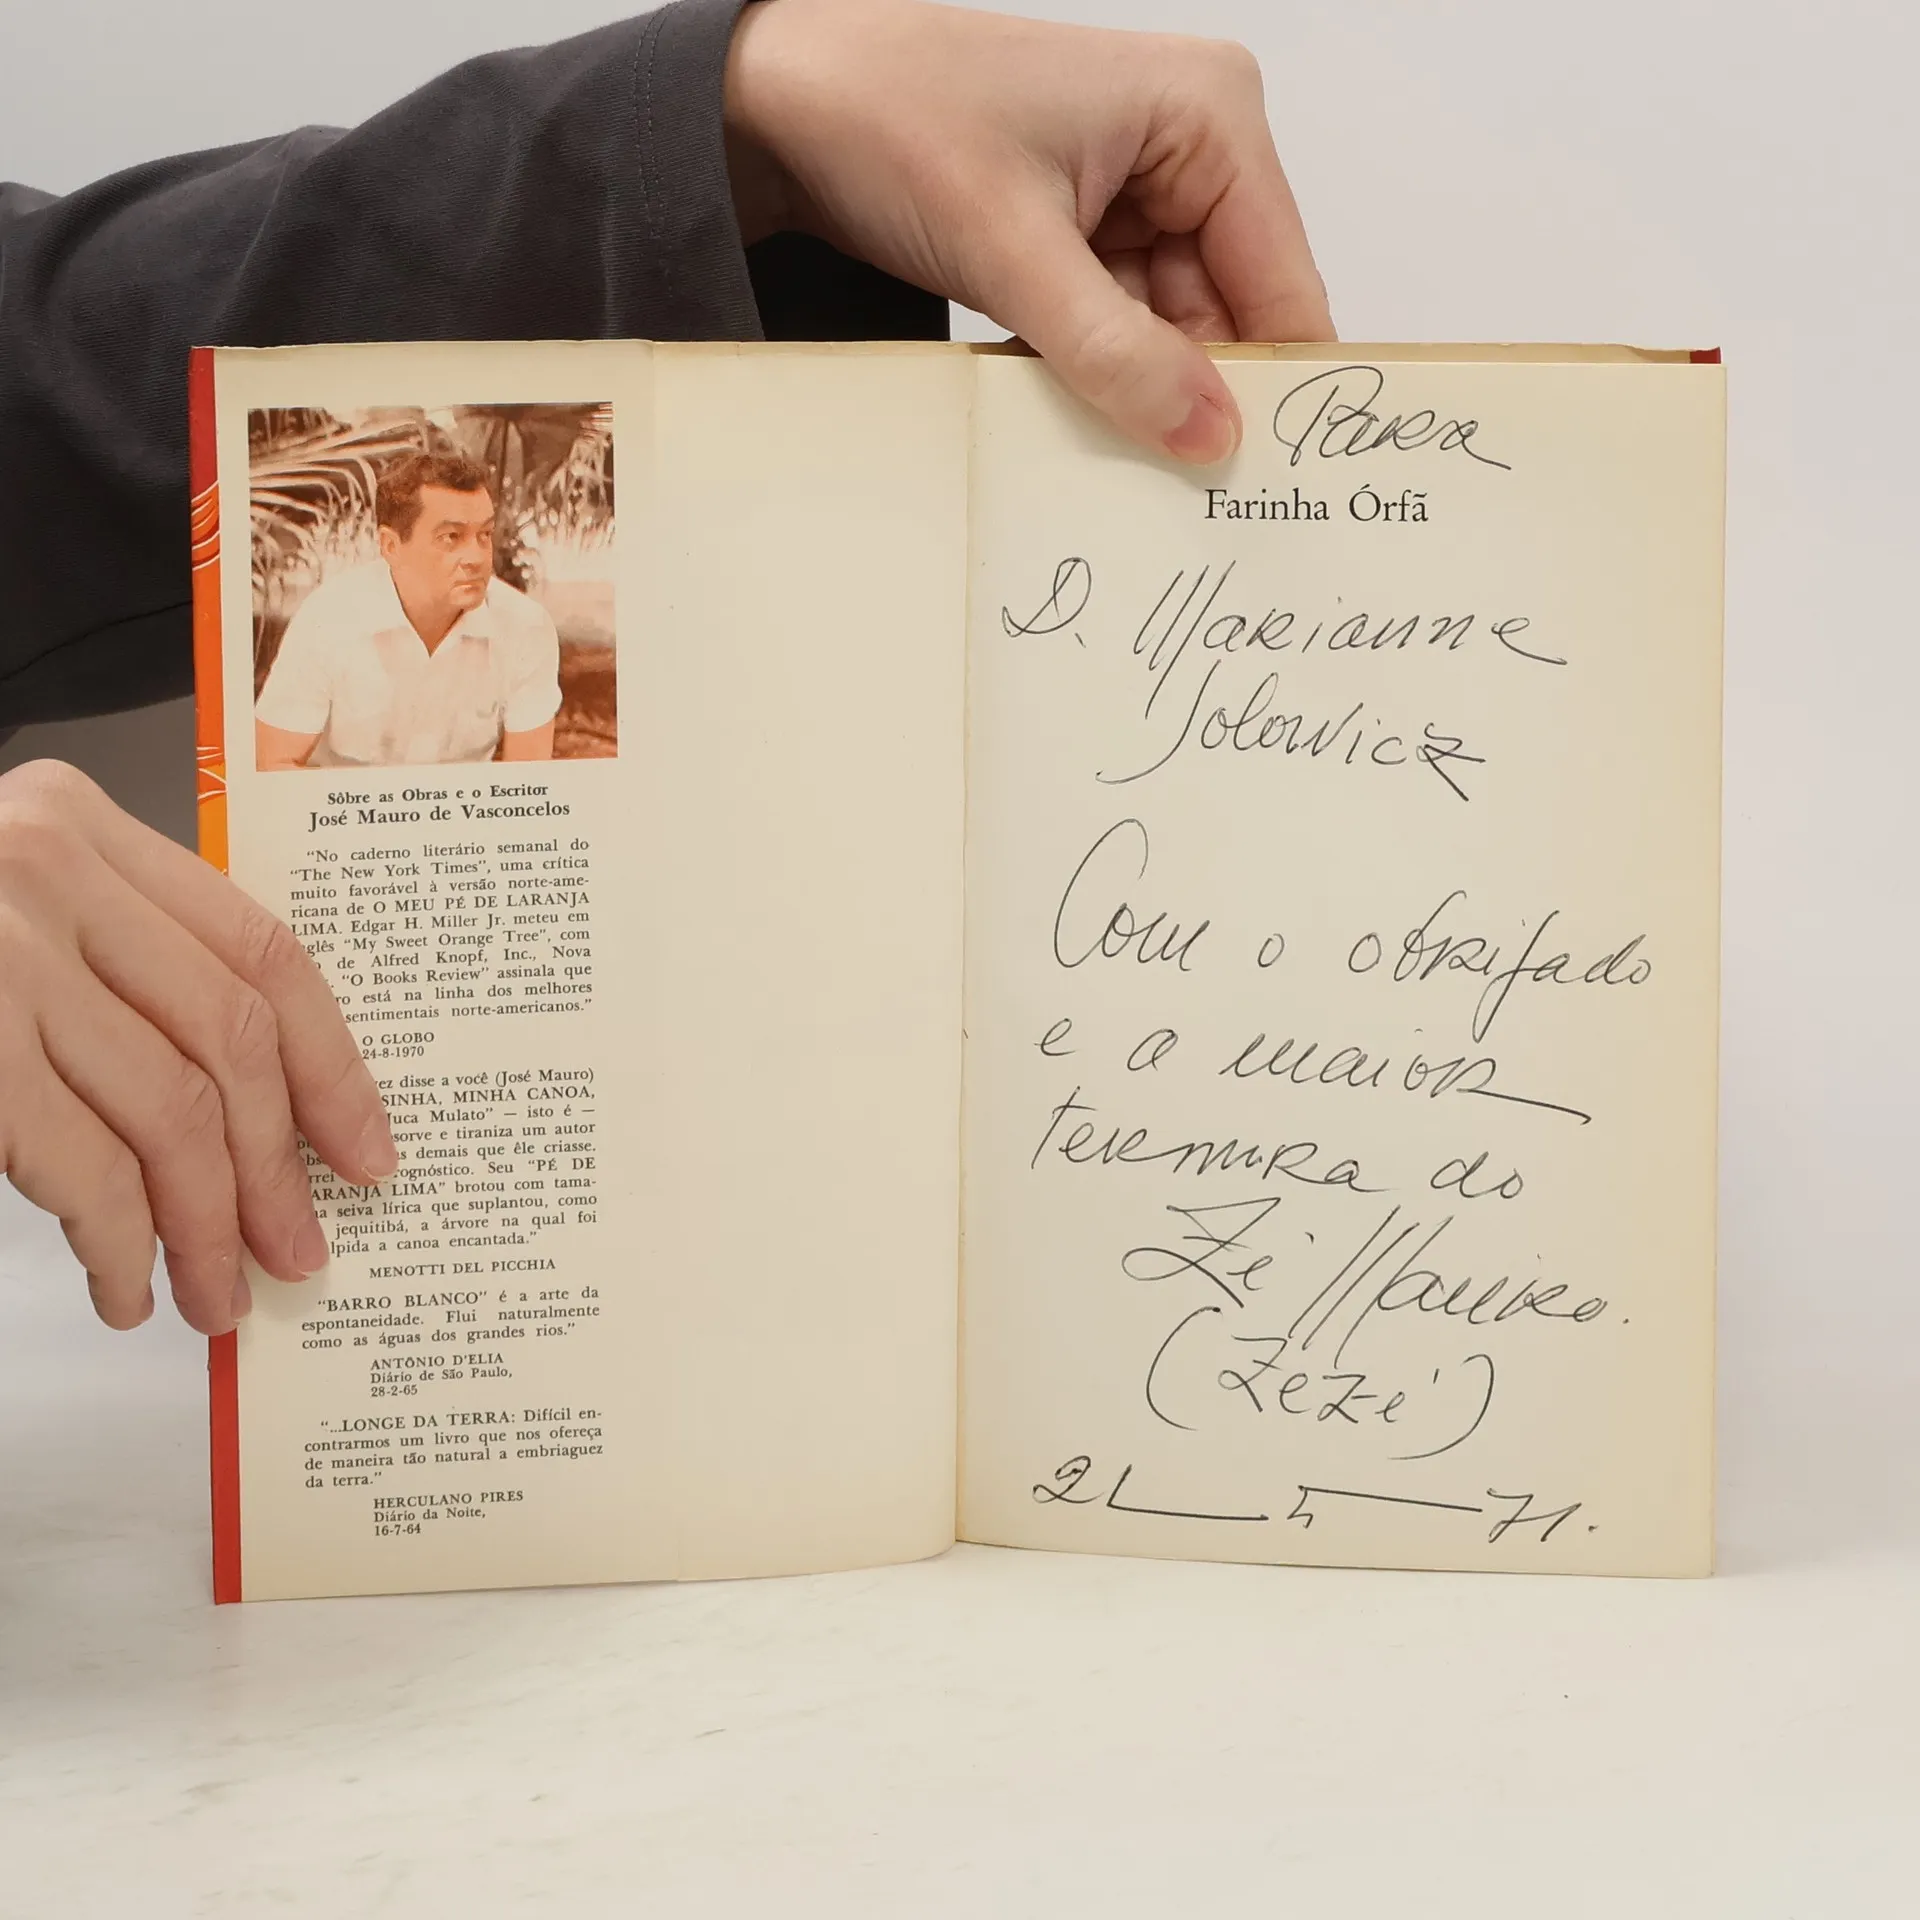 Sôbre as Obras e o Escritor
José Mauro de Vasconcelos
“No caderno literário semanal do
“The New York Times”, uma crítica
muito favorável à versão norte-ame-
ricana de O MEU PÉ DE LARANJA
LIMA. Edgar H. Miller Jr. meteu em
glês “My Sweet Orange Tree”, com
de Alfred Knopf, Inc., Nova
“O Books Review” assinala que
ro está na linha dos melhores
sentimentais norte-americanos.”
O GLOBO
24-8-1970
ez disse a você (José Mauro)
SINHA, MINHA CANOA,
Juca Mulato” — isto é —
sorve e tiraniza um autor
s demais que êle criasse.
rrei rognóstico. Seu “PÉ DE
ARANJA LIMA” brotou com tama-
a seiva lírica que suplantou, como
jequitibá, a árvore na qual foi
lpida a canoa encantada.”
MENOTTI DEL PICCHIA
“BARRO BLANCO” é a arte da
espontaneidade. Flui naturalmente
como as águas dos grandes rios.”
ANTÔNIO D'ELIA
Diário de São Paulo,
28-2-65
“...LONGE DA TERRA: Difícil en-
contrarmos um livro que nos ofereça
de maneira tão natural a embriaguez
da terra.”
HERCULANO PIRES
Diário da Noite,
16-7-64
Para
Farinha Órfã
D. Marianne
Jolowicz
Com o obrigado
e a maior
ternura do
Zé Mauro.
(Zezé)
21-5-71.